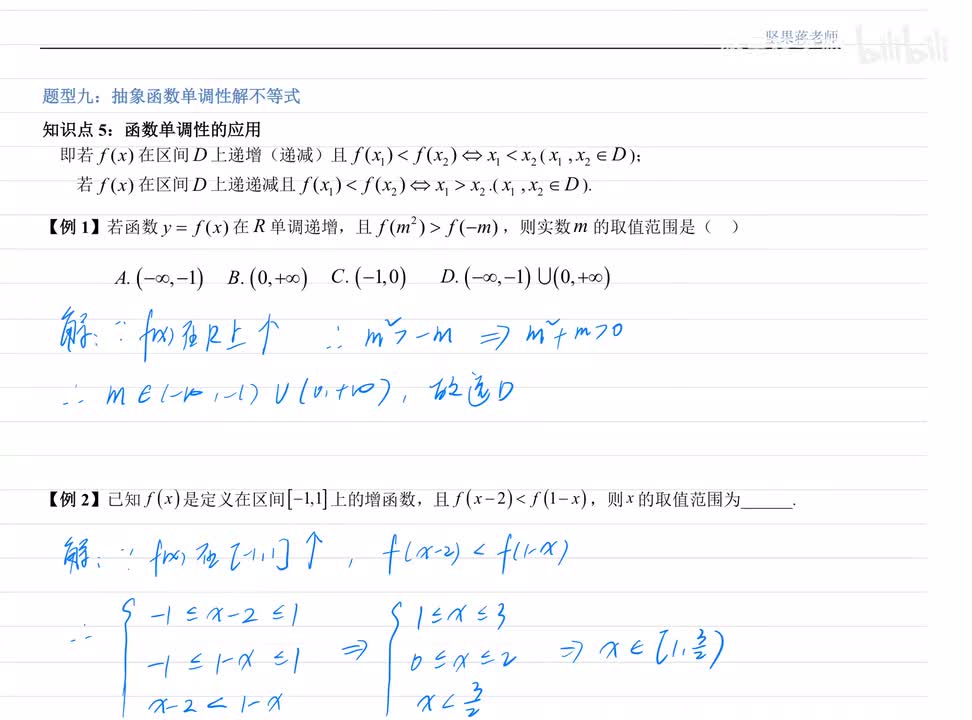 坚果蒋老师
bilibili
题型九：抽象函数单调性解不等式
知识点 5：函数单调性的应用
即若 f(x) 在区间 D 上递增（递减）且 f(x₁) < f(x₂) ⇔ x₁ < x₂ ( x₁ , x₂ ∈ D )；
若 f(x) 在区间 D 上递递减且 f(x₁) < f(x₂) ⇔ x₁ > x₂ .( x₁ , x₂ ∈ D ).
【例 1】若函数 y = f(x) 在 R 单调递增，且 f(m²) > f(−m) ，则实数 m 的取值范围是（ ）
A. (−∞,−1) B. (0,+∞) C. (−1,0) D. (−∞,−1)∪(0,+∞)
解：∵ f(x) 在 R 上 ↑ ∴ m² > −m ⇒ m² + m > 0
∴ m ∈ (−∞, −1) ∪ (0, +∞)，故选 D
【例 2】已知 f(x) 是定义在区间 [−1,1] 上的增函数，且 f(x−2) < f(1−x)，则 x 的取值范围为______.
解：∵ f(x) 在 [−1,1] ↑ ，f(x−2) < f(1−x)
∴ { −1 ≤ x−2 ≤ 1 ⇒ { 1 ≤ x ≤ 3 ⇒ x ∈ [1, 3/2)
−1 ≤ 1−x ≤ 1 0 ≤ x ≤ 2
x−2 < 1−x x < 3/2